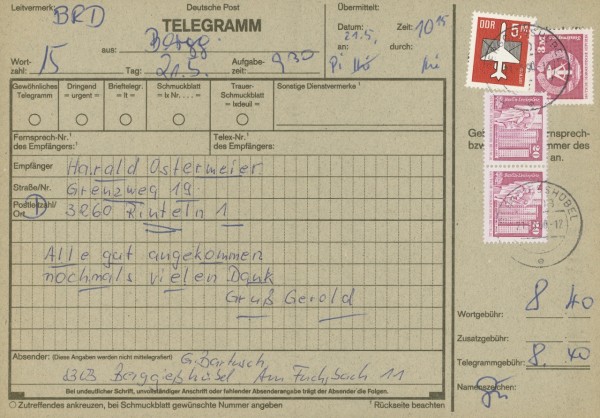 Leitvermerk: BRD
Deutsche Post
TELEGRAMM
Übermittelt:
aus:
Datum: 21.5.
Zeit: 10 15
an:
durch:
Wort-
zahl: 15
Tag: 21.5.
Aufgabe-
zeit: 930
Gewöhnliches
Telegramm
Dringend
= urgent =
Brieftelegr.
= lt =
Schmuckblatt
= lx Nr. . . . =
Trauer-
Schmuckblatt
= lxdeuil =
Sonstige Dienstvermerke ¹
Fernsprech-Nr.¹
des Empfängers:¹
Telex-Nr.¹
des Empfängers:
Empfänger
Harald Ostermeier
Straße/Nr.
Grenzweg 19
Postleitzahl/
Ort
3260 Rinteln 1
Alle gut angekommen
nochmals vielen Dank
Gruß Gerold
Absender: (Diese Angaben werden nicht mittelegrafiert)
G. Bartusch
8303 Berggießhübel Am Fuchsbach 11
Bei undeutlicher Schrift, unvollständiger Anschrift oder fehlender Absenderangabe trägt der Absender die Folgen.
Zutreffendes ankreuzen, bei Schmuckblatt gewünschte Nummer angeben
¹ Rückseite beachten
DDR
5 M
20
20
des
an.
Wortgebühr: 8 40
Zusatzgebühr:
Telegrammgebühr: 8. 40
Namenszeichen: